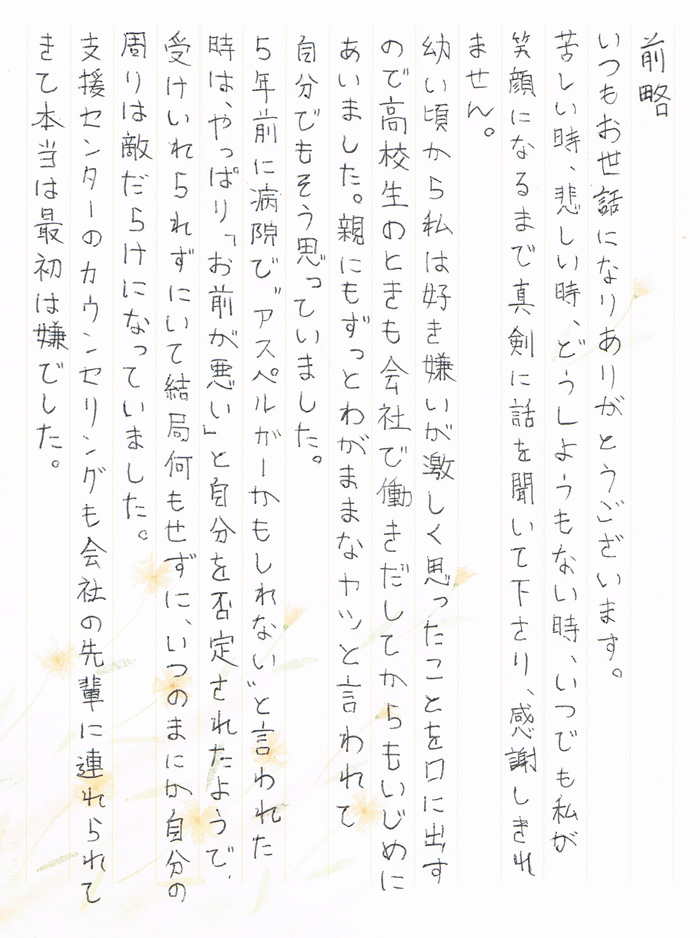 前略
いつもお世話になりありがとうございます。
苦しい時、悲しい時、どうしようもない時、いつでも私が
笑顔になるまで真剣に話を聞いて下さり、感謝しきれ
ません。
幼い頃から私は好き嫌いが激しく思ったことを口に出す
ので高校生のときも会社で働きだしてからもいじめに
あいました。親にもずっとわがままなヤツと言われて
自分でもそう思っていました。
5年前に病院で"アスペルガーかもしれない"と言われた
時は、やっぱり「お前が悪い」と自分を否定されたようで、
受けいれられずにいて結局何もせずに、いつのまにか自分の
周りは敵だらけになっていました。
支援センターのカウンセリングも会社の先輩に連れられて
きて本当は最初は嫌でした。